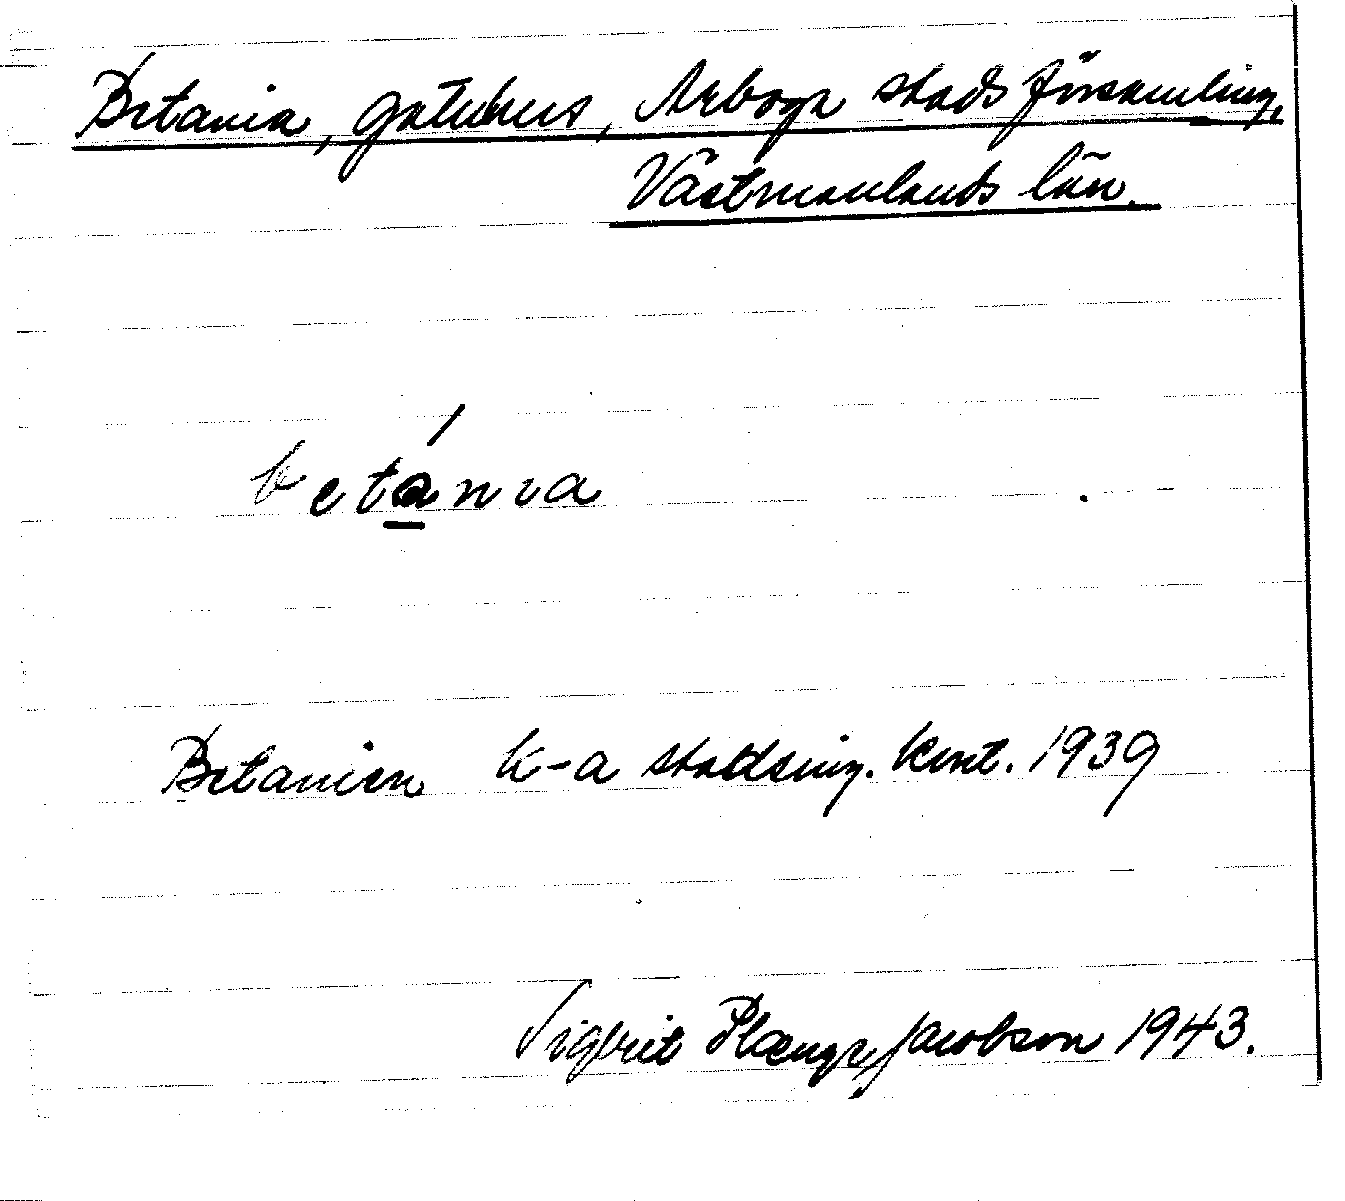 Betania, gatuhus, Arboga stads församling,
Västmanlands län.
betánia
Betanien k-a stadsing. kont. 1939
Sigbrit Plænge Jacobson 1943.